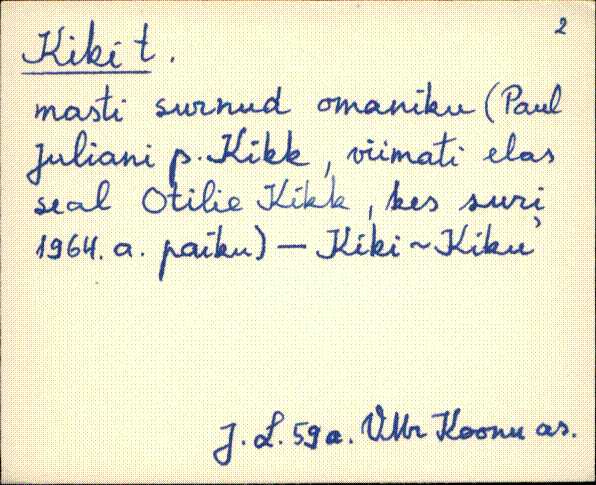 2
Kiki t.
masti surnud omaniku (Paul
Juliani p. Kikk, viimati elas
seal Otilie Kikk, kes suri
1964. a. paiku) — Kiki ~ Kiku’
J. L. 59 a. VMr Koonu as.